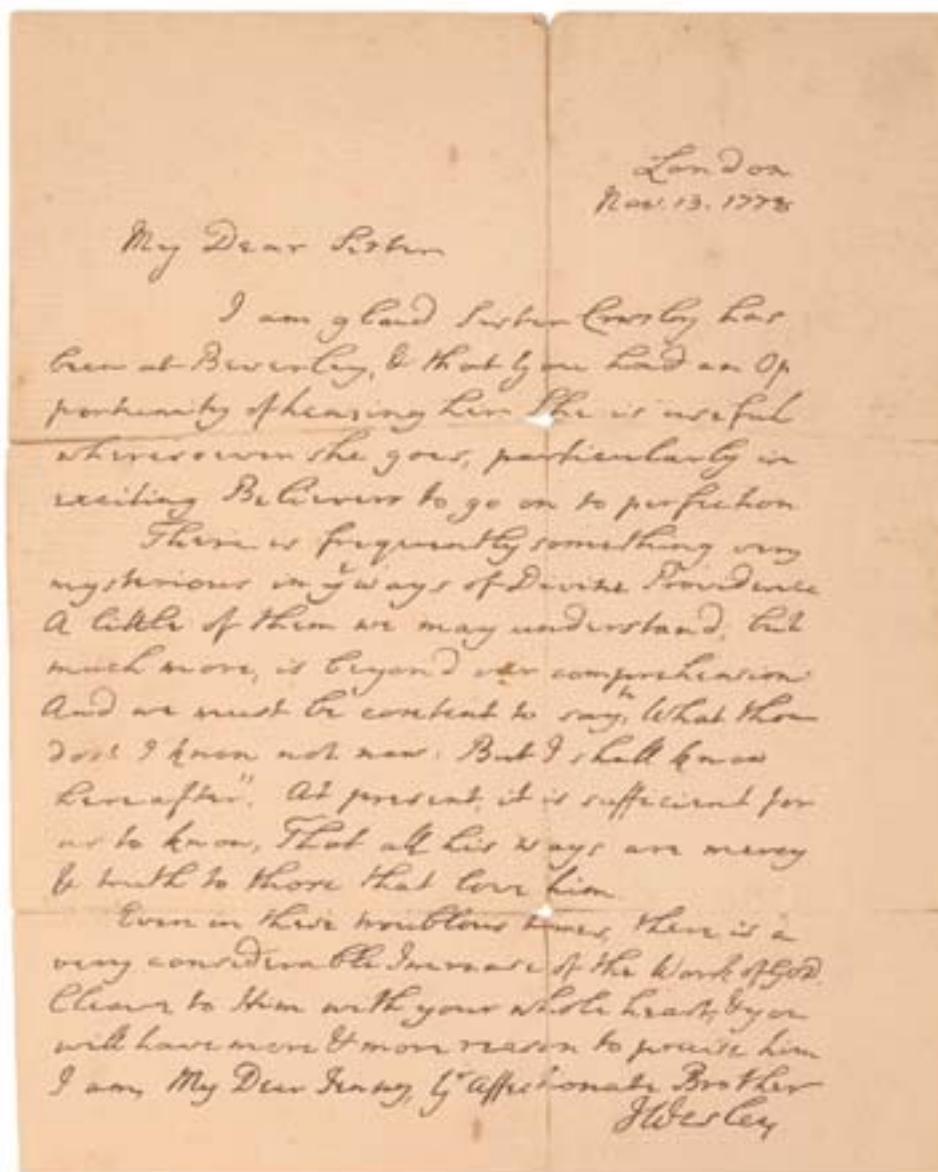 London
Nov. 13. 1778
My Dear Sister
I am glad Sister Crosby has
been at Beverley, & that you had an Op
portunity of hearing her. She is useful
wheresoever she goes, particularly in
exciting Believers to go on to perfection
There is frequently something very
mysterious in yᵉ ways of Divine Providence
A little of them we may understand, but
much more, is beyond our comprehension
And we must be content to say, "What thou
dost I know not now. But I shall know
hereafter". At present, it is sufficient for
us to know, That all his ways are mercy
& truth to those that love him
Even in these troublous times, there is a
very considerable Increase of the Work of God.
Cleave to Him with your whole heart, & you
will have more & more reason to praise him
I am, My Dear Jenny, yʳ Affectionate Brother
JWesley